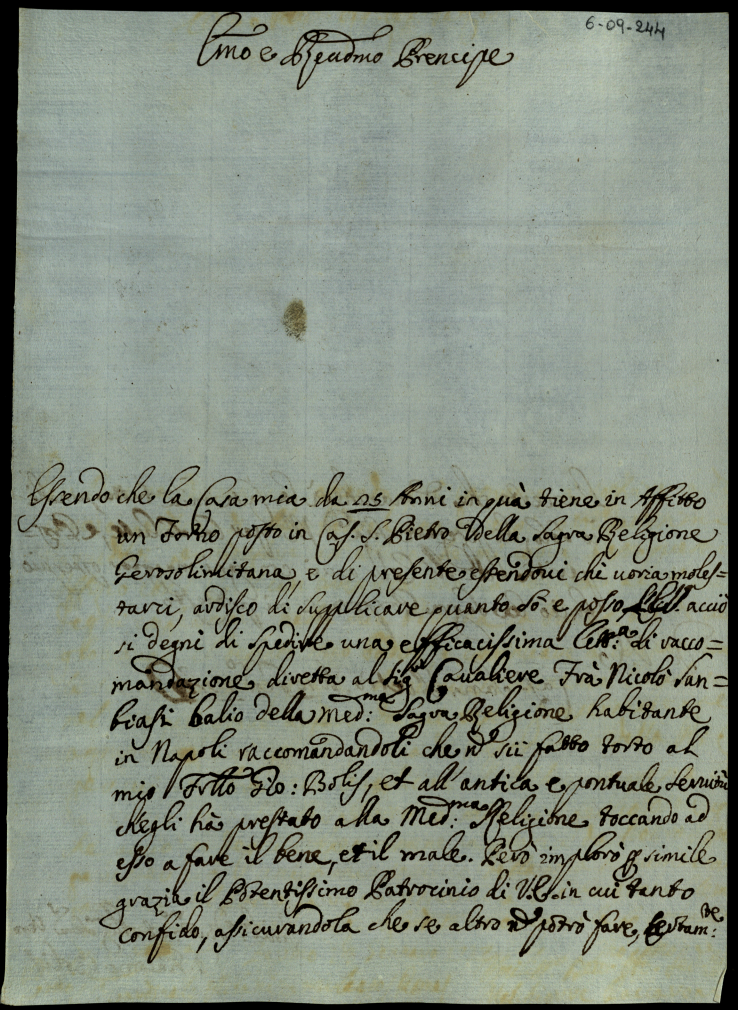 6-09-244
Emo e Rseudmo Prencipe
Essendo che la Casa mia da 25 Anni in quà tiene in Affitto
un Forno posto in Cas. S. Pietro della Sagra Religione
Gerosolimitana, e di presente essendoui chi uoria moles=
tarci, ardisco di supplicare quanto sò e posso, acciò
si degni di spedire una efficacissima lett.ª di racco=
mandazione diretta al Sig.r Caualiere Frà Nicolò San=
biasi balio della med:ma Sagra Religione habitante
in Napoli raccomandandoli che nō sii fatto torto al
mio Frllo Gio: Bolis, et all'antica e pontuale seruitù
ch'egli hà prestato alla Med:ma Religione toccando ad
esso a fare il bene, et il male. Però imploro p simile
grazia il Potentissimo Patrocinio di V.E. in cui tanto
confido, assicurandola che se altro nō potrò fare, certam:te